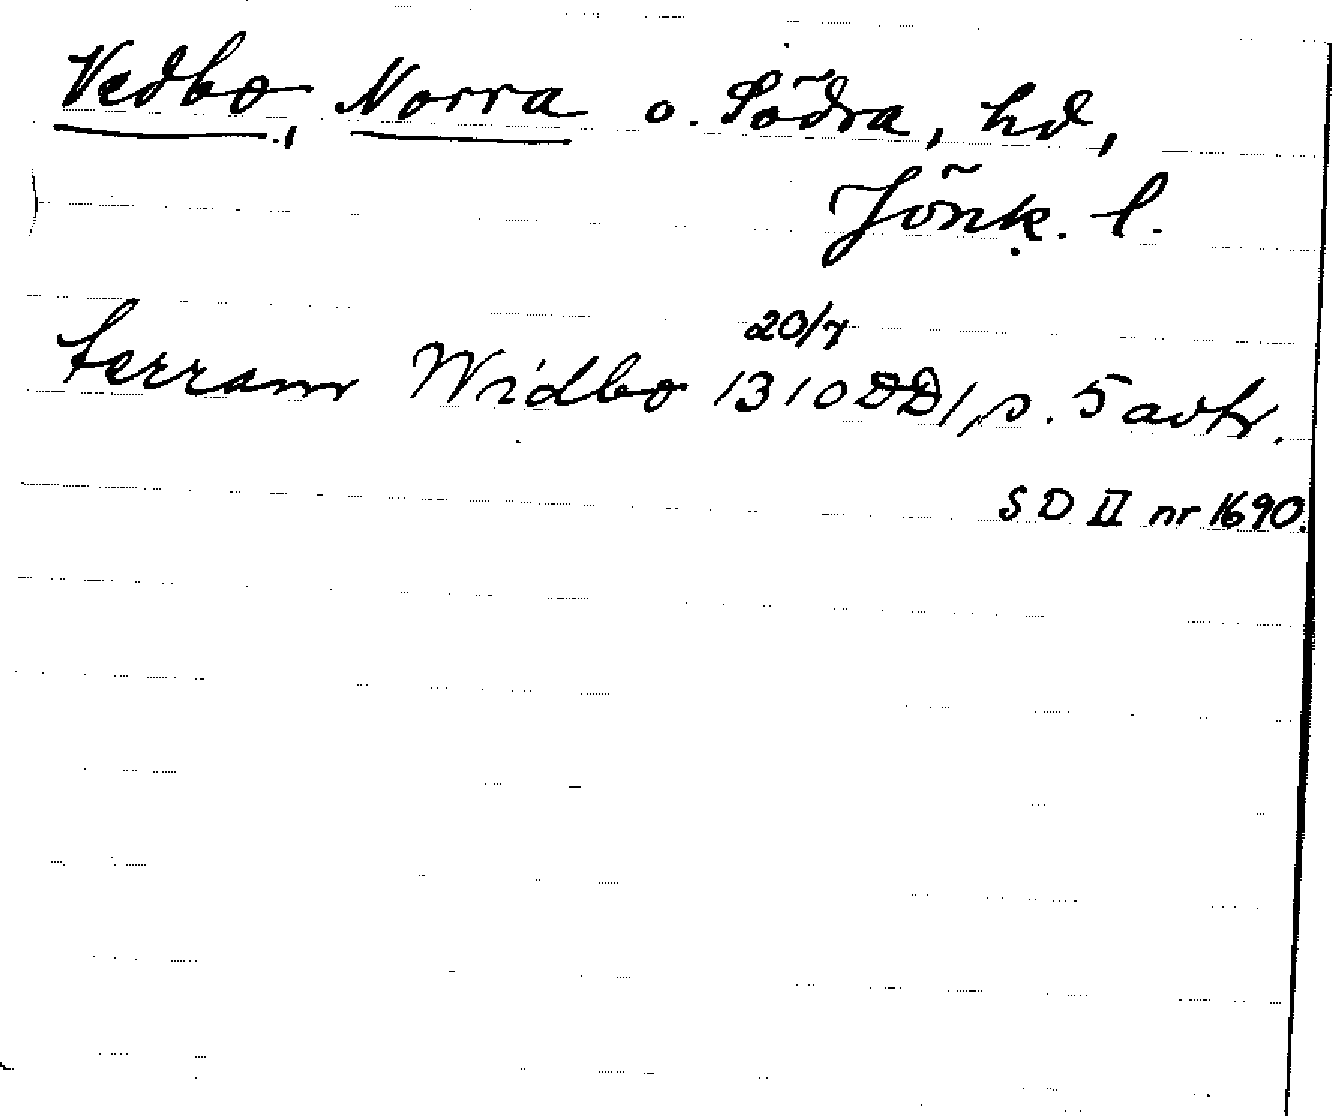 Vedbo, Norra o. Södra, hd,
Jönk. l.
terram Widbo 20/7 1310 DD 1, s. 5 avtr.
SD II nr 1690.